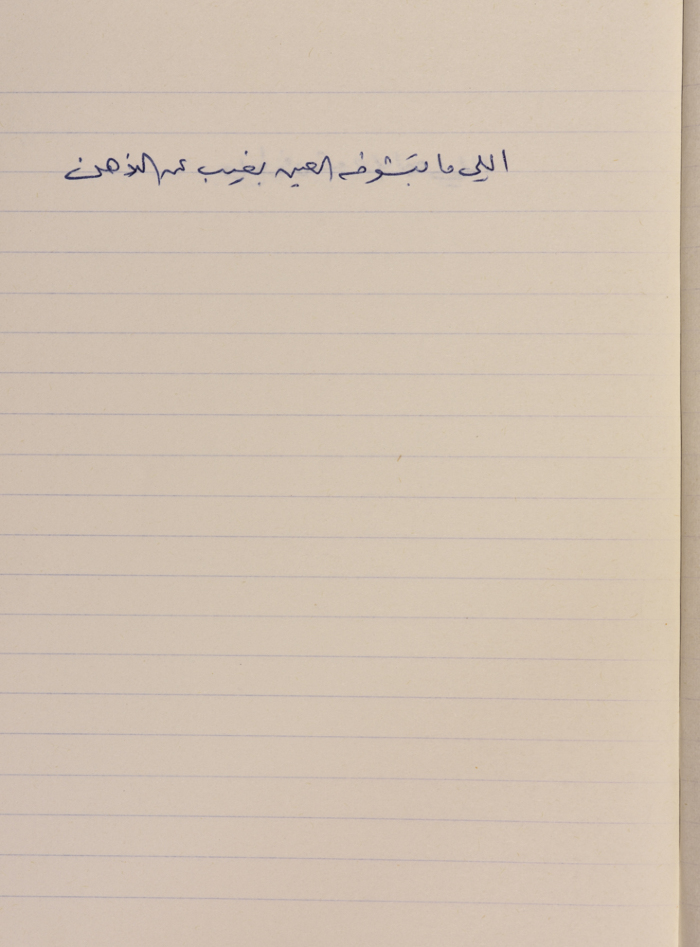 اللي ما بتشوفه العين بغيب عن الذهن